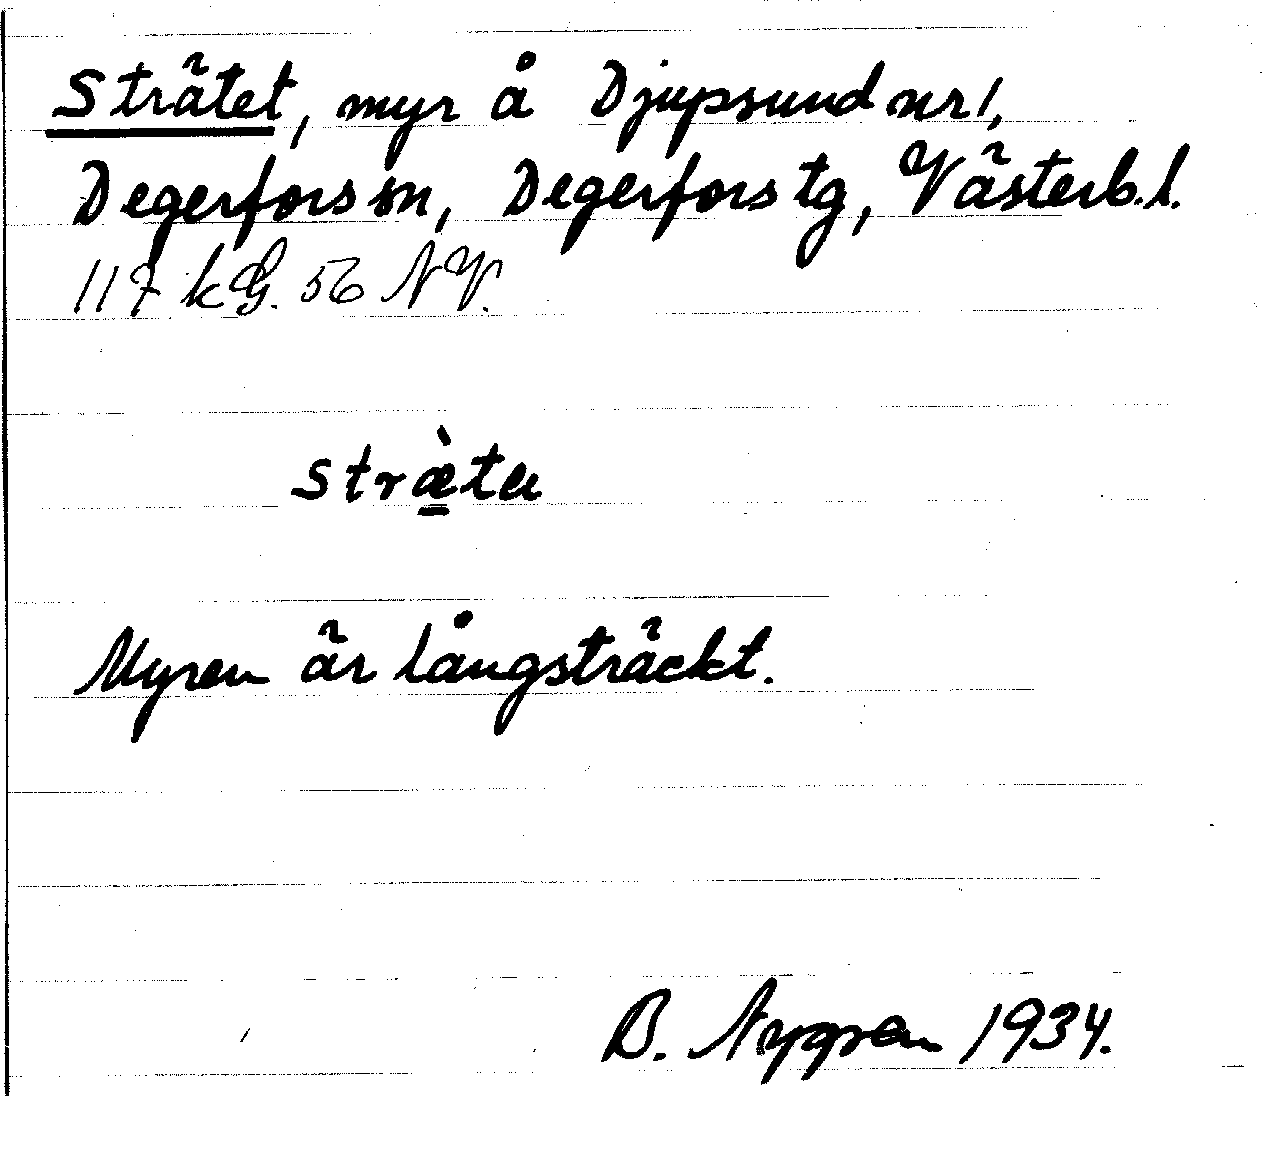 Strätet, myr å Djupsund nr 1,
Degerfors sn, Degerfors tg, Västerb. l.
117 kG. 56 NV.
stræ̀ta
Myren är långsträckt.
B. Nygren 1934.